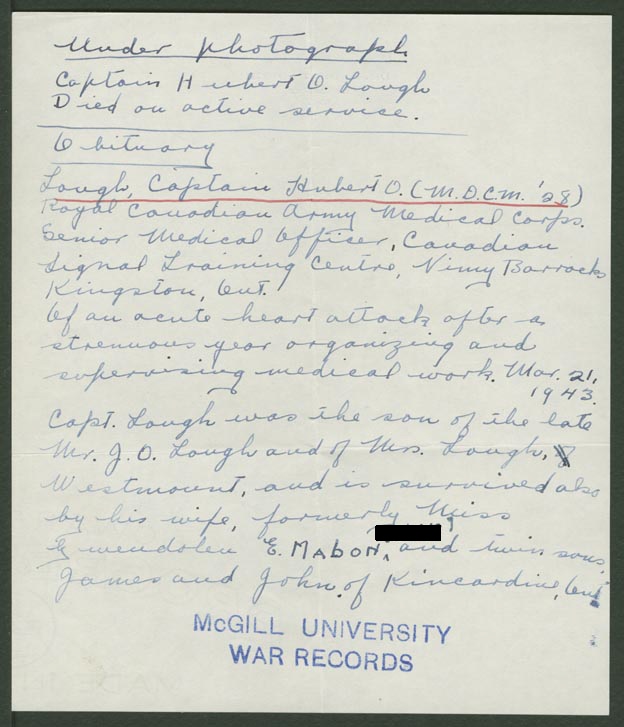 Under photograph
Captain Hubert O. Lough
Died on active service.
Obituary
Lough, Captain Hubert O. (M.D.C.M. '28)
Royal Canadian Army Medical Corps.
Senior Medical Officer, Canadian
Signal Training Centre, Vimy Barracks
Kingston, Ont.
Of an acute heart attack after a
strenuous year organizing and
supervising medical work. Mar. 21,
1943.
Capt. Lough was the son of the late
Mr. J. O. Lough and of Mrs. Lough,
Westmount, and is survived also
by his wife, formerly Miss
Gwendolen E. MABON, and twin sons,
James and John, of Kincardine, Ont.
McGILL UNIVERSITY
WAR RECORDS